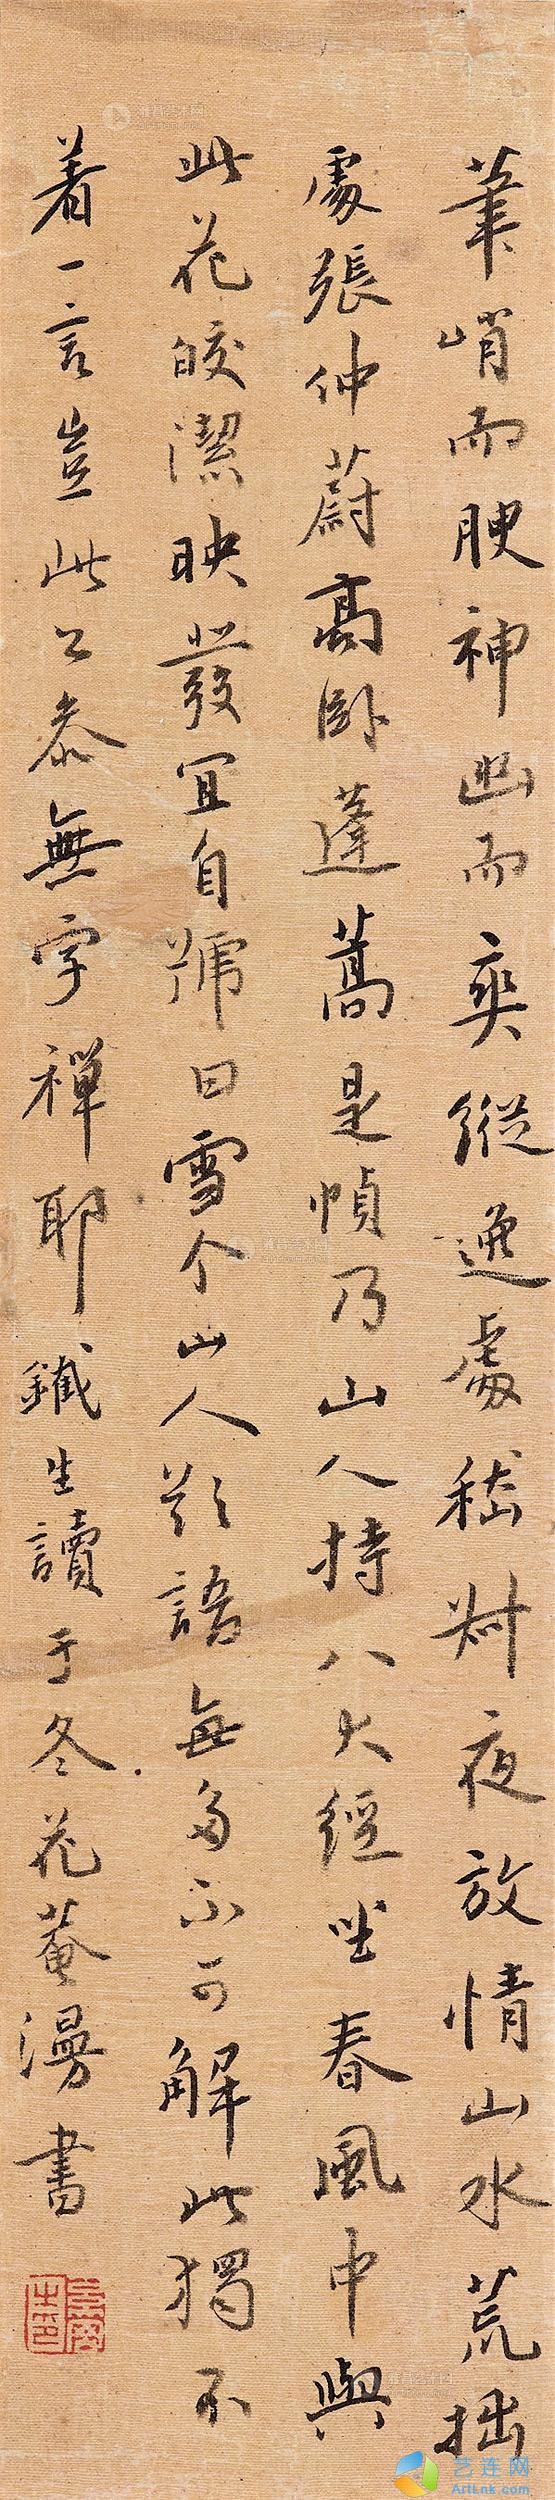 筆峭而腴神幽而爽縱逸處嵇尌夜放情山水荒拙
處張仲蔚高卧蓬蒿是幀乃山人持八大經坐春風中與
此花皎潔映發宜自號曰雪个山人題語無多不可解此獨不
着一言豈此公参無字禪耶鐵生讀于冬花菴漫書
艺连网
ArtLnk.com